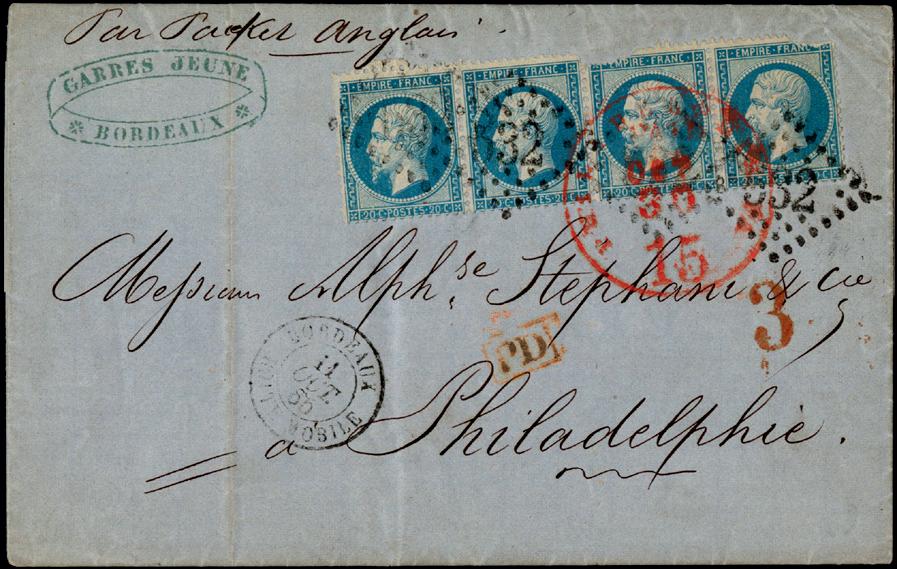 Par Packet Anglais.
GARRES JEUNE
BORDEAUX
EMPIRE FRANC.
EMPIRE FRANC.
EMPIRE FRANC.
EMPIRE FRANC.
20 C. POSTES 20 C.
20 C. POSTES 20 C.
20 C. POSTES 20 C.
20 C. POSTES 20 C.
532
532
OCT
30
15
Messieurs Alphse Stephani & cie
3
PD
BORDEAUX
11
OCT
MOBILE
à Philadelphie.